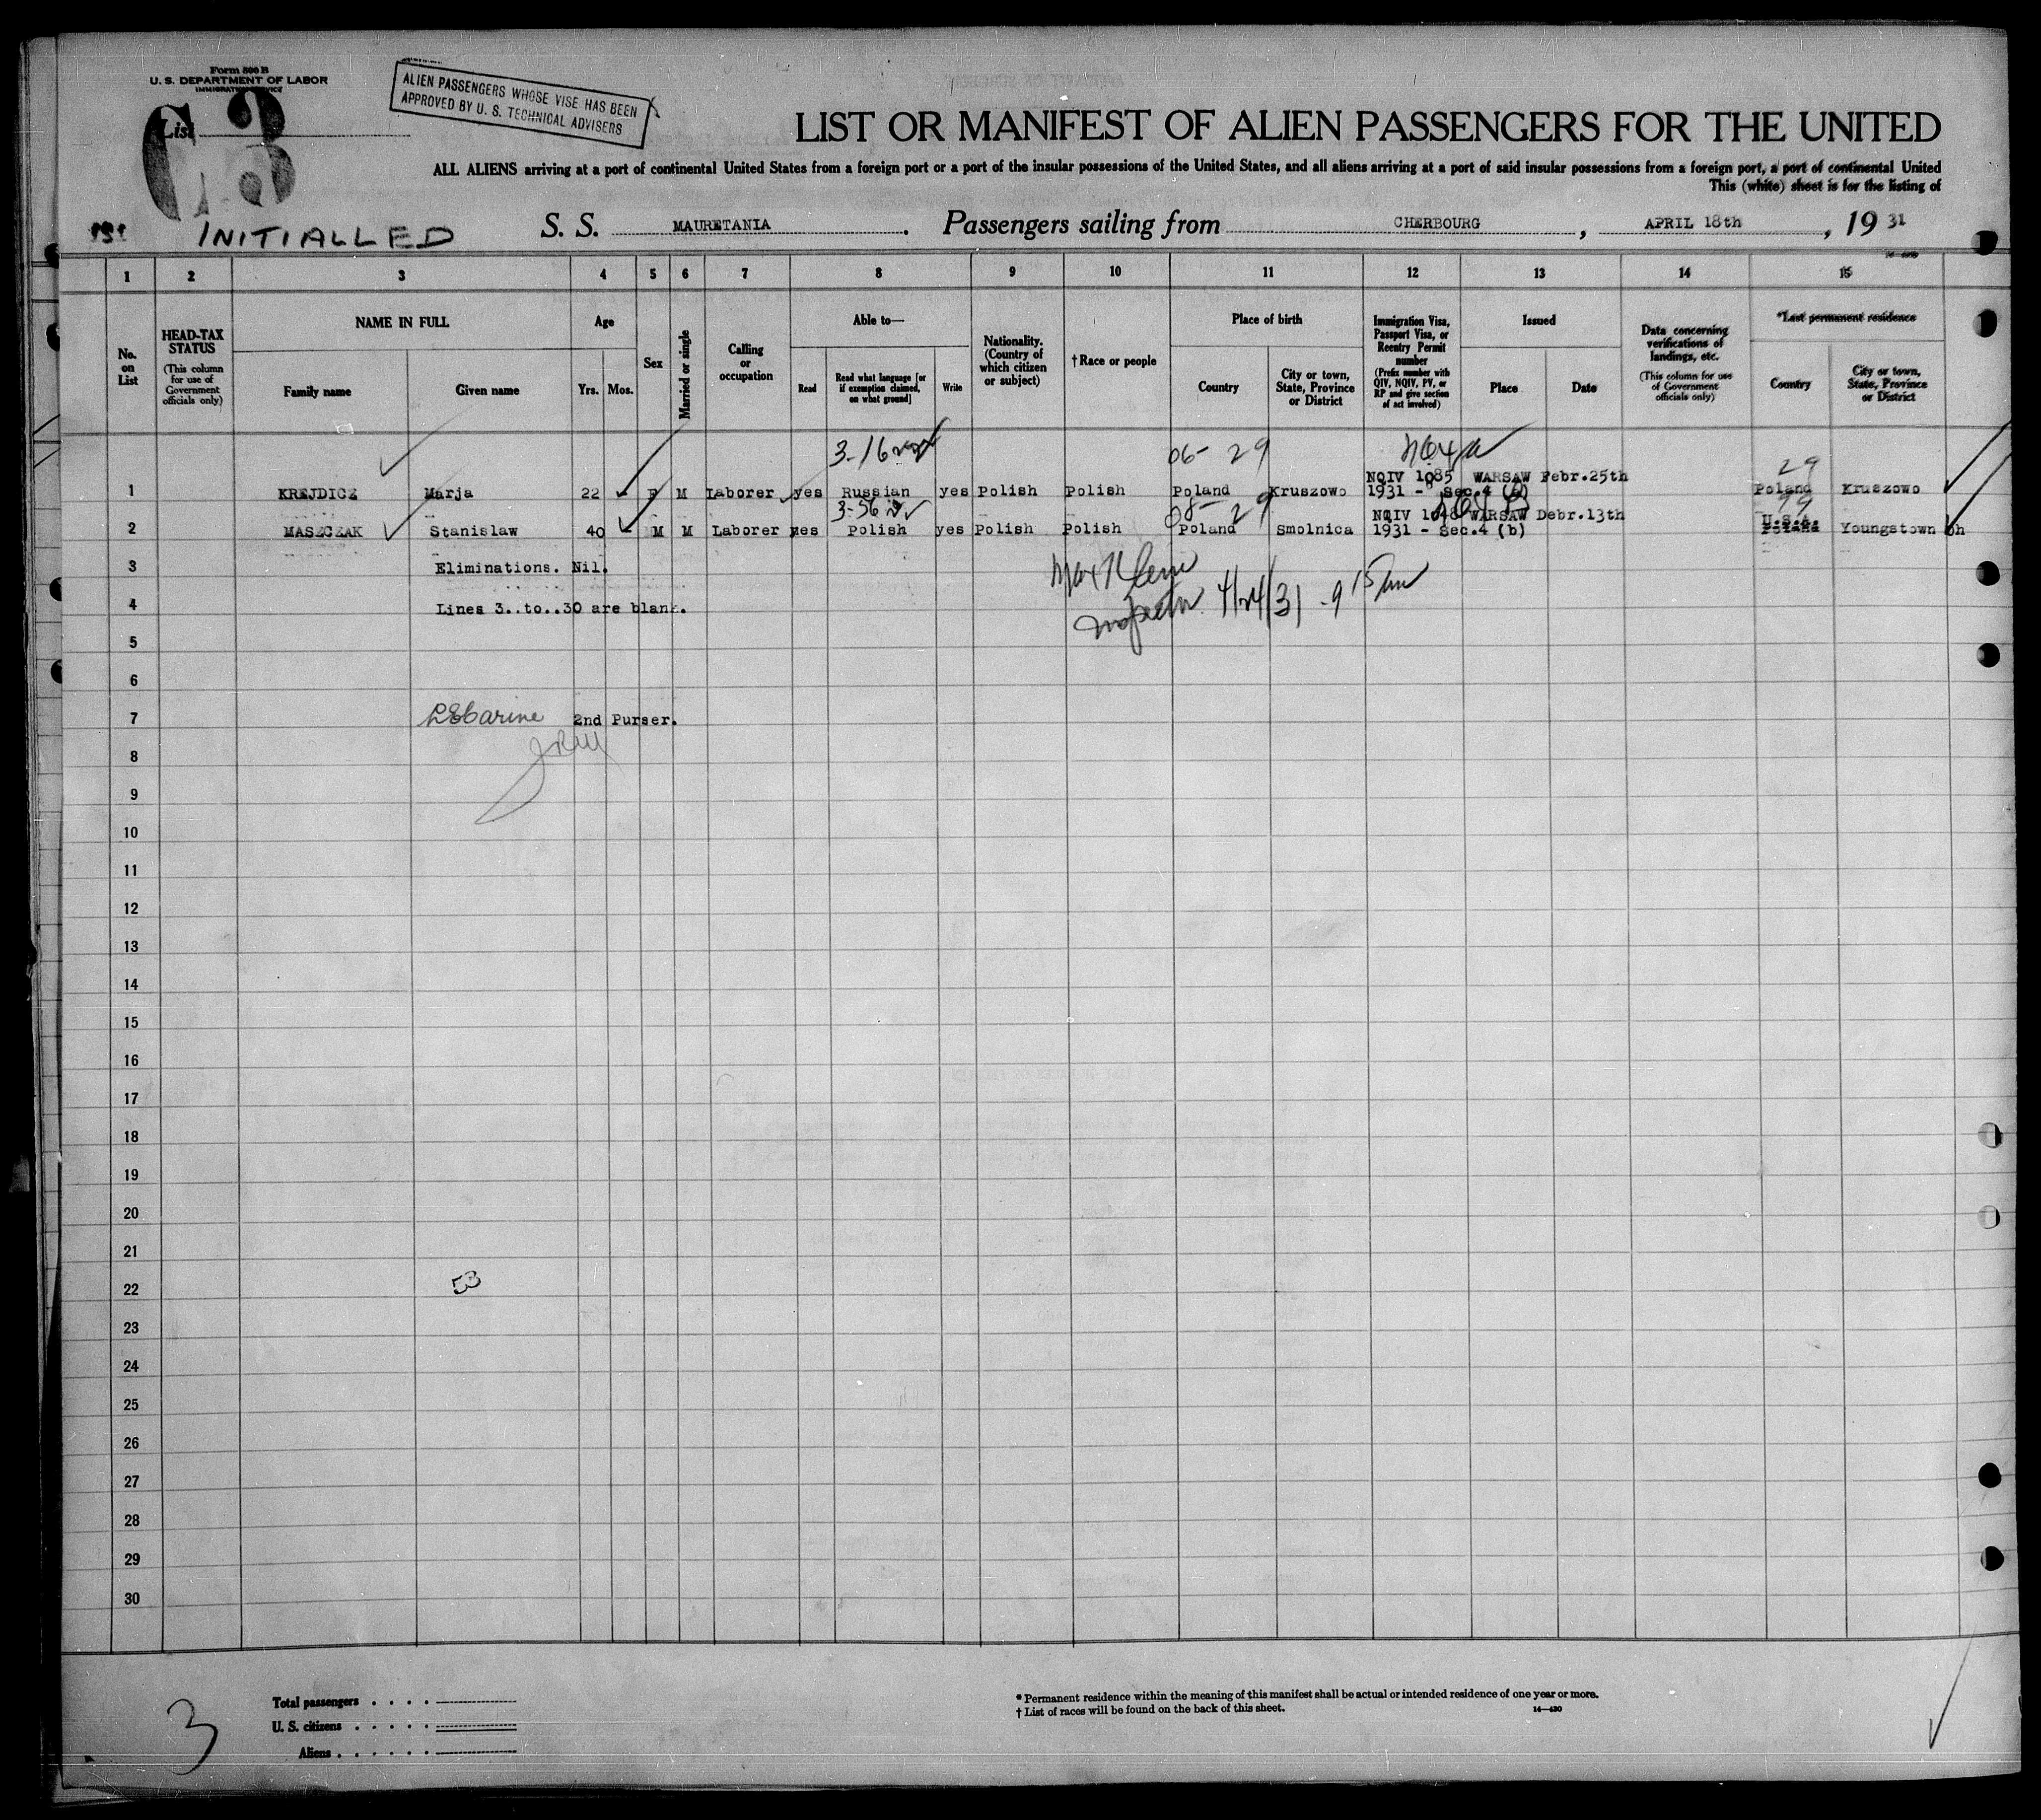 Form 500 B
U. S. DEPARTMENT OF LABOR
IMMIGRATION SERVICE
List
3
ALIEN PASSENGERS WHOSE VISE HAS BEEN
APPROVED BY U. S. TECHNICAL ADVISERS
LIST OR MANIFEST OF ALIEN PASSENGERS FOR THE UNITED
ALL ALIENS arriving at a port of continental United States from a foreign port or a port of the insular possessions of the United States, and all aliens arriving at a port of said insular possessions from a foreign port, a port of continental United
This (white) sheet is for the listing of
INITIALLED
S. S. MAURETANIA. Passengers sailing from CHERBOURG, APRIL 18th, 19 31
1 2 3 4 5 6 7 8 9 10 11 12 13 14 15
No. on List
HEAD-TAX STATUS (This column for use of Government officials only)
NAME IN FULL
Family name
Given name
Age
Yrs. Mos.
Sex
Married or single
Calling or occupation
Able to—
Read
Read what language [or if exemption claimed, on what ground]
Write
Nationality. (Country of which citizen or subject)
† Race or people
Place of birth
Country
City or town, State, Province or District
Immigration Visa, Passport Visa, or Reentry Permit number (Prefix number with QIV, NQIV, PV, or RP and give section of act involved)
Issued
Place
Date
Data concerning verifications of landings, etc. (This column for use of Government officials only)
*Last permanent residence
Country
City or town, State, Province or District
3-16 06- 29 29
NQIV 1085 WARSAW Febr.25th
1 KREJDICZ Marja 22 F M Laborer yes Russian yes Polish Polish Poland Kruszowo 1931 - Sec.4 Poland Kruszowo
3-56 08- 29 99
NQIV 1048 WARSAW Debr.13th U.S.A.
2 MASECZAK Stanislaw 40 M M Laborer yes Polish yes Polish Polish Poland Smolnica 1931 - Sec.4 (b) Poland Youngstown Oh
3 Eliminations. Nil.
4 Lines 3..to..30 are blank.
4/24/31 - 9 15 am
5
6
7 2nd Purser.
8
9
10
11
12
13
14
15
16
17
18
19
20
21
22 53
23
24
25
26
27
28
29
30
3
Total passengers
U. S. citizens
Aliens
* Permanent residence within the meaning of this manifest shall be actual or intended residence of one year or more.
† List of races will be found on the back of this sheet.
14—430